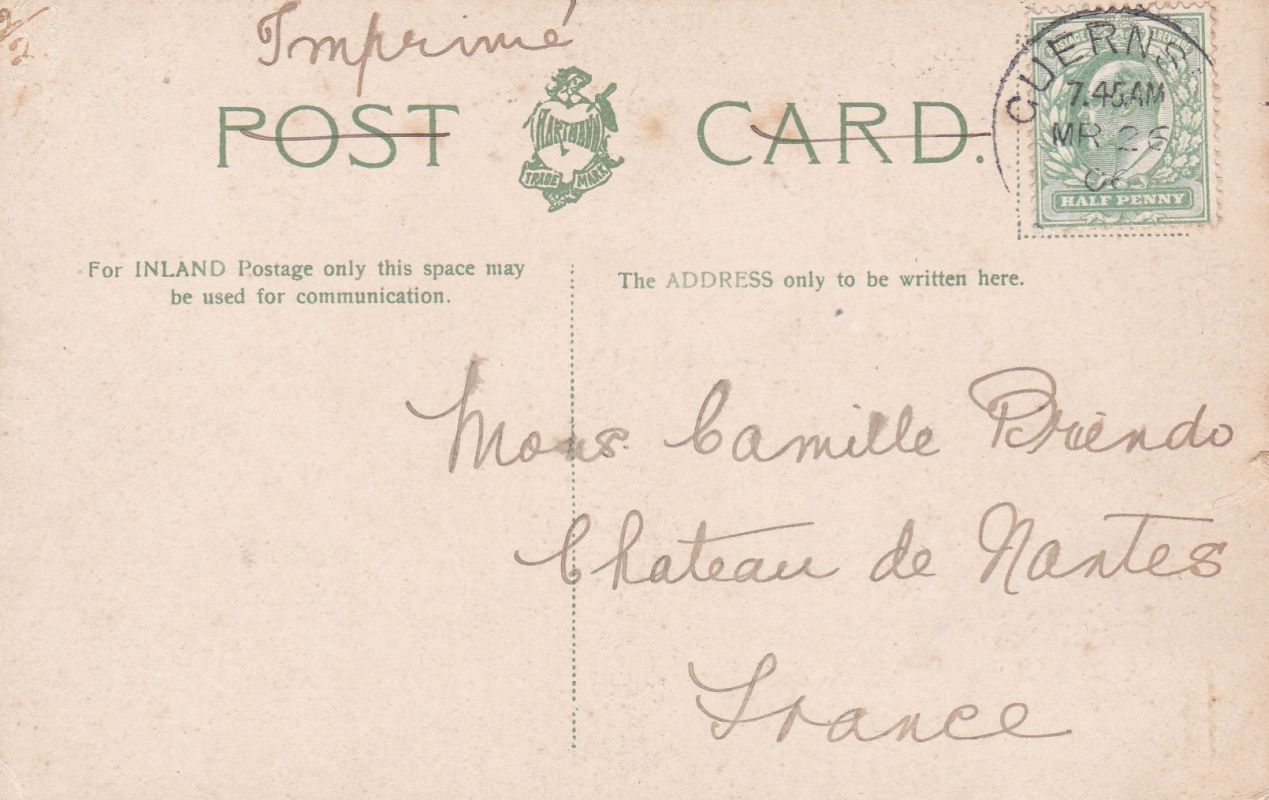 2/2.
Imprimé
POST CARD.
HARTMANN
TRADE MARK
POSTAGE REVENUE
GUERNS
7.45.AM
MR 26
06
HALF PENNY
For INLAND Postage only this space may
be used for communication.
The ADDRESS only to be written here.
Mons Camille Briendo
Chateau de Nantes
France